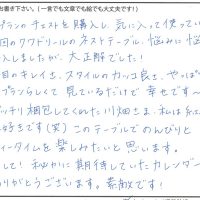 お書き下さい。(一言でも文章でも絵でも大丈夫です!)
プランのチェストを購入し、気に入って使ってい
回のクワドリールのネストテーブル、悩みに悩
入しましたが、大正解でした!
目のキレイさ、スタイルのカッコ良さ、やっぱり
プランらしくて 見ているだけで幸せです〜
ッチリ梱包してくれた川畑さま、私は
好きです(笑) このテーブルでのんびりと
ィータイムを楽しみたいと思います。
して! 秘かに期待していたカレンダー
りがとうございます。素敵です!